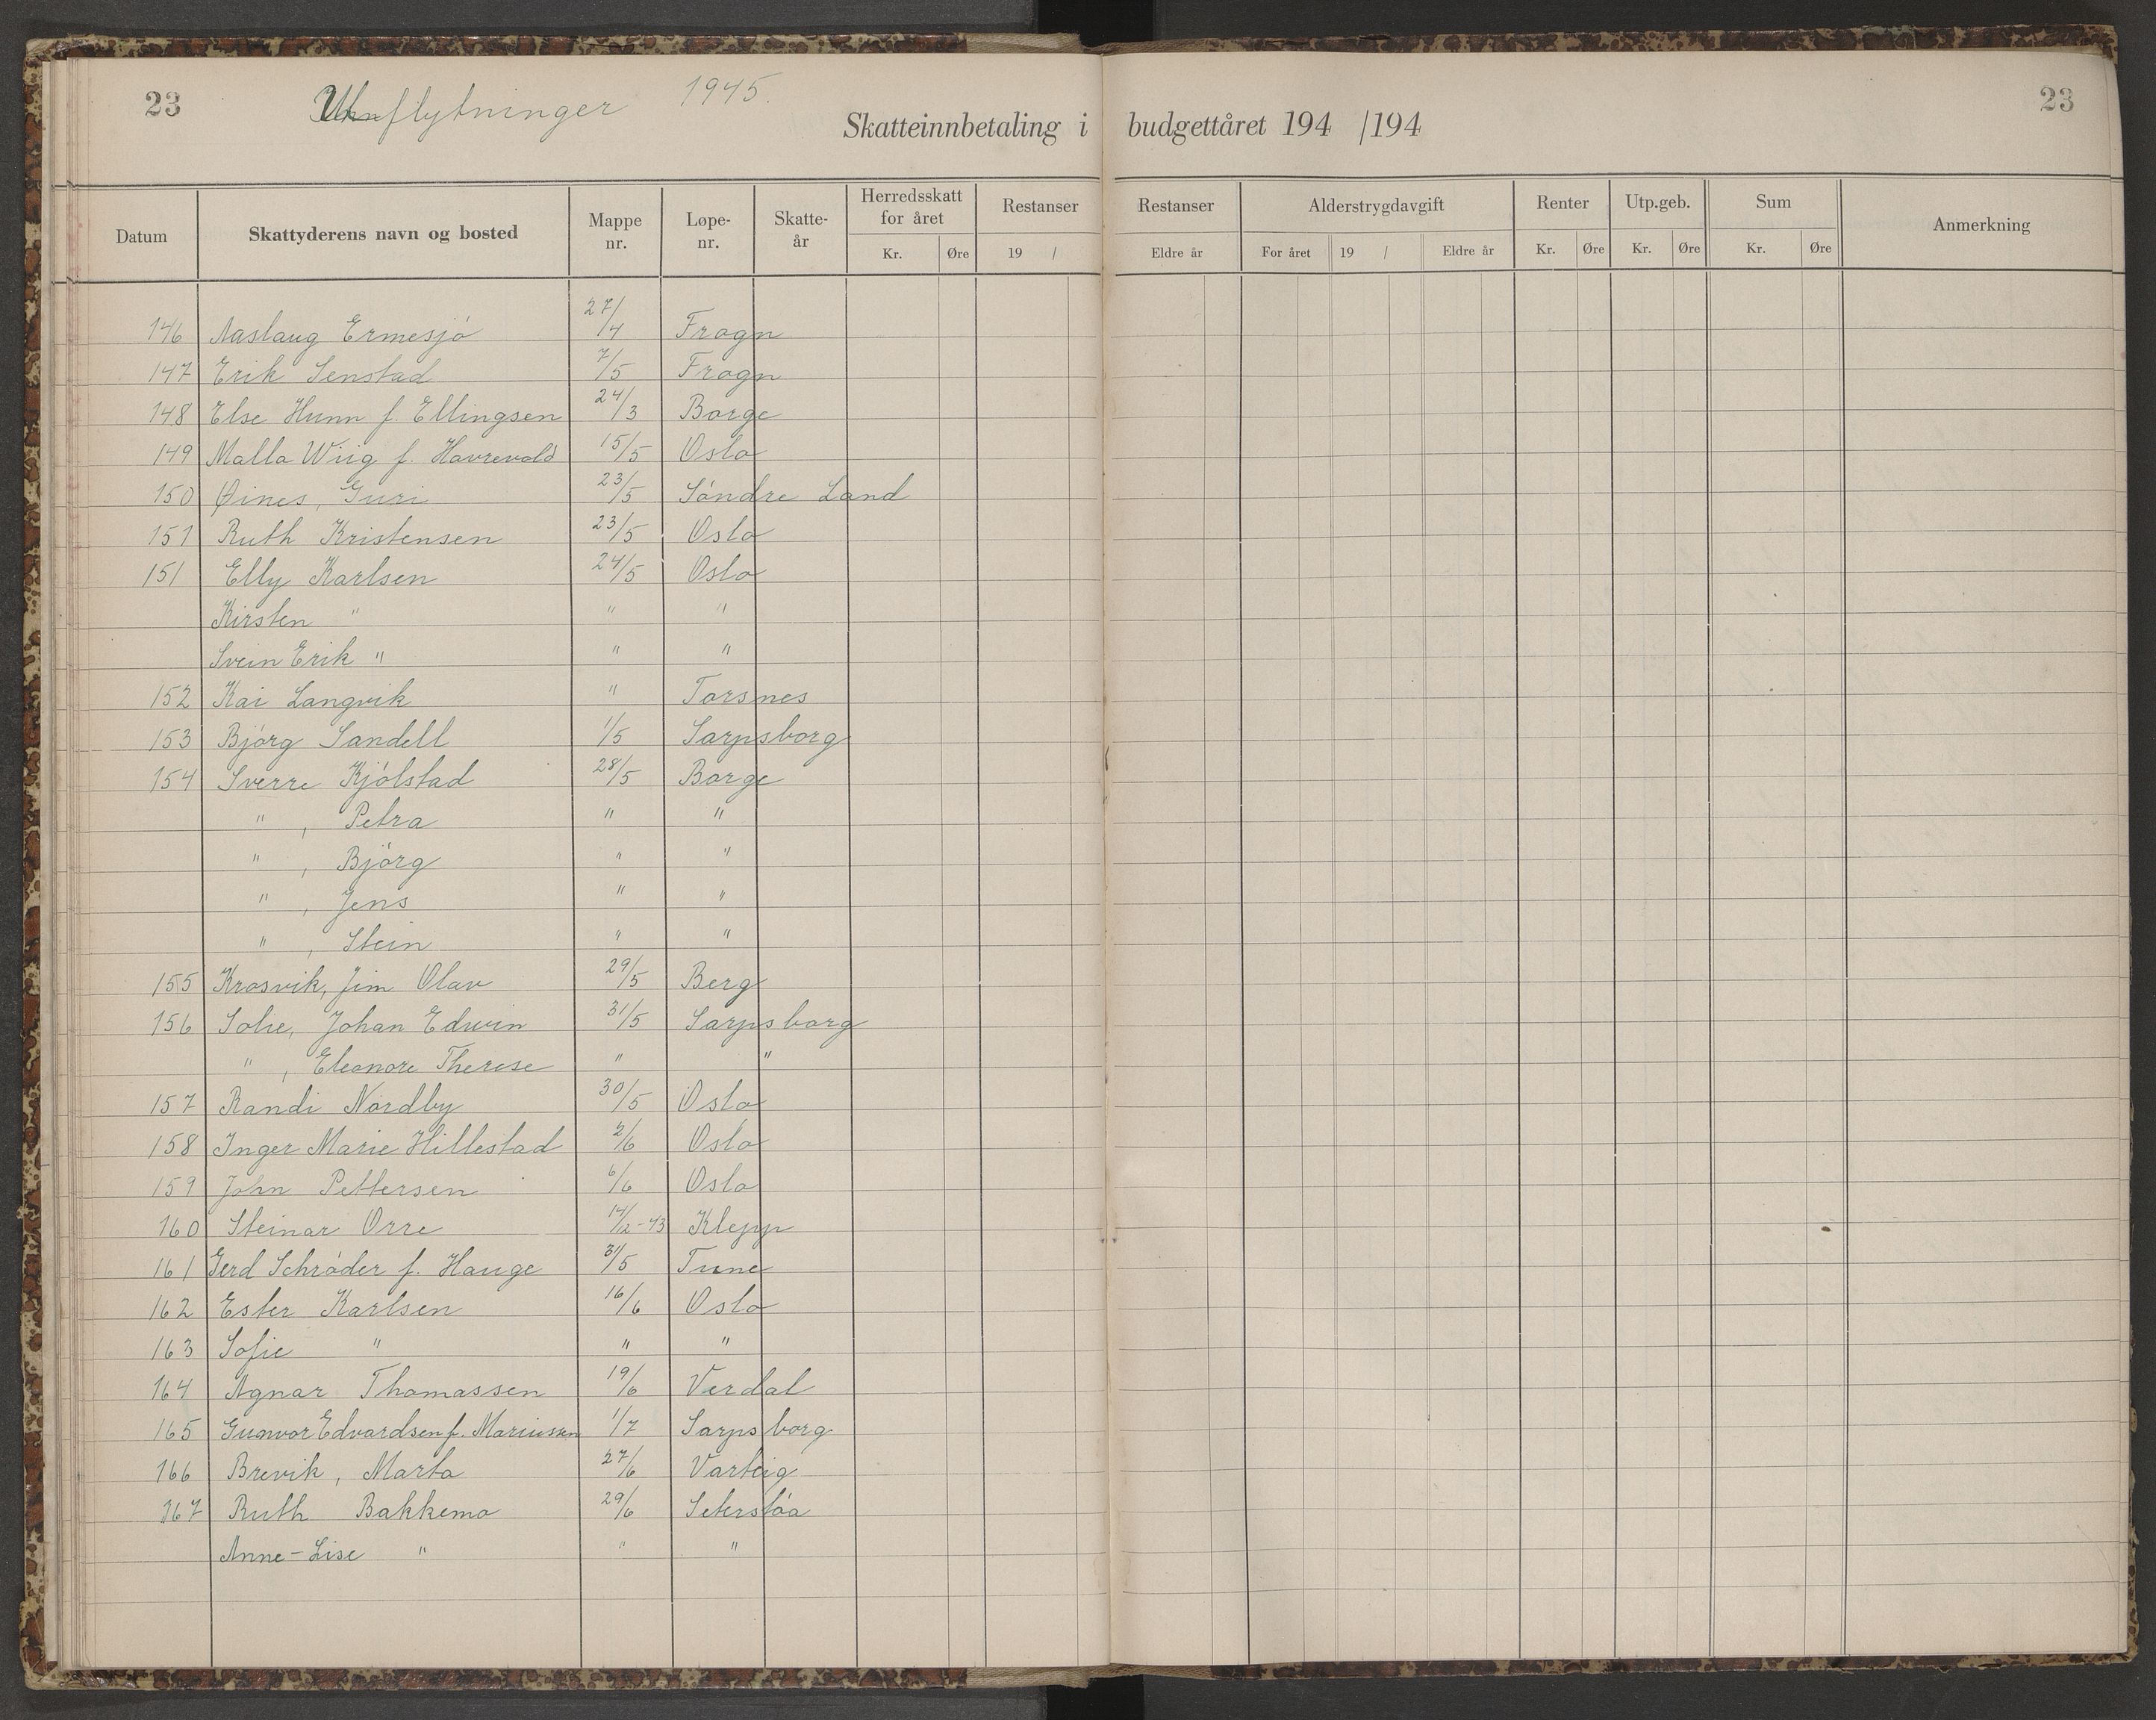 23 Utflytninger 1945. 23
Skatteinnbetaling i budgettåret 194 /194
Datum Skattyderens navn og bosted Mappe nr. Løpe-nr. Skatte-år Herredsskatt for året Kr. Øre Restanser 19 / Restanser Eldre år Alderstrygdavgift For året 19 / Eldre år Renter Kr. Øre Utp.geb. Kr. Øre Sum Kr. Øre Anmerkning
146 Aaslaug Ermesjö 27/4 Frogn
147 Erik Senstad 7/5 Frogn
148 Else Hunn f. Ellingsen 24/3 Borge
149 Malla Wiig f. Havrevold 15/5 Oslo
150 Øines, Guri 23/5 Söndre Land
151 Ruth Kristensen 23/5 Oslo
151 Elly Karlsen 24/5 Oslo
Kirsten " " "
Svein Erik " " "
152 Kai Langvik " Torsnes
153 Björg Sandell 1/5 Sarpsborg
154 Sverre Kjölstad 28/5 Borge
" , Petra " "
" , Björg " "
" , Jens " "
" , Stein " "
155 Krosvik, Jim Olav 29/5 Berg
156 Solie, Johan Edwin 31/5 Sarpsborg
" , Eleonore Therese " "
157 Randi Nordby 30/5 Oslo
158 Inger Marie Hillestad 2/6 Oslo
159 John Pettersen 6/6 Oslo
160 Steinar Orre 14/12-43 Klepp
161 Gerd Schröder f. Hauge 31/5 Tune
162 Ester Karlsen 16/6 Oslo
163 Sofie " " "
164 Agnar Thomassen 19/6 Verdal
165 Gunvor Edvardsen f. Mariussen 1/7 Sarpsborg
166 Brevik, Marta 27/6 Varteig
167 Ruth Bakkemo 29/6 Seterstöa
Anne-Lise " " "